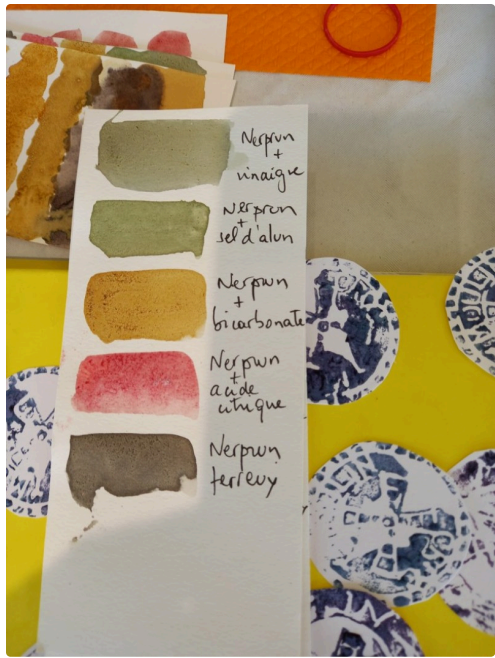 Nerprun
+
vinaigre
Nerprun
+
sel d'alun
Nerprun
+
bicarbonate
Nerprun
+
acide
citrique
Nerprun